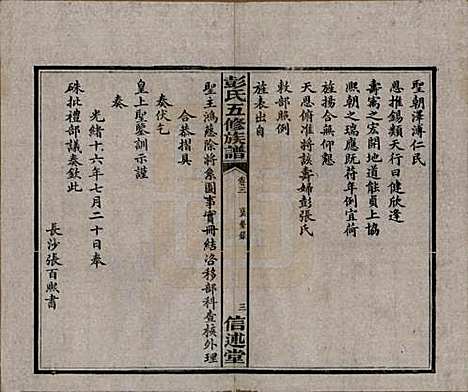 聖朝澤溥仁民
恩推錫類天行日健欣逢
壽寓之宏開地道能貞上協
熙朝之瑞應既符年例宜荷
旌揚合無仰懇
天恩俯准將該壽婦彭張氏
敕部照例
旌表出自
聖主鴻慈除將系圖事實冊結洛移部科查核外理
合恭摺具
奏伏乞
皇上聖鑒訓示謹
奏
光緒十六年七月二十日奉
硃批禮部議奏欽此
長沙張百熙書
彭氏五修族譜
卷三
三
信述堂